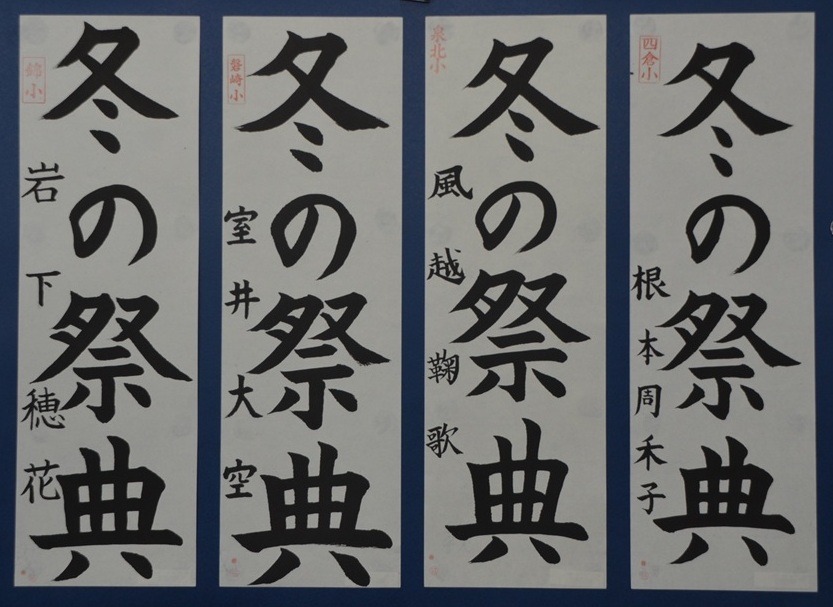 四倉小
冬の祭典
根本周禾子
泉北小
冬の祭典
風越鞠歌
磐崎小
冬の祭典
室井大空
錦小
冬の祭典
岩下穂花